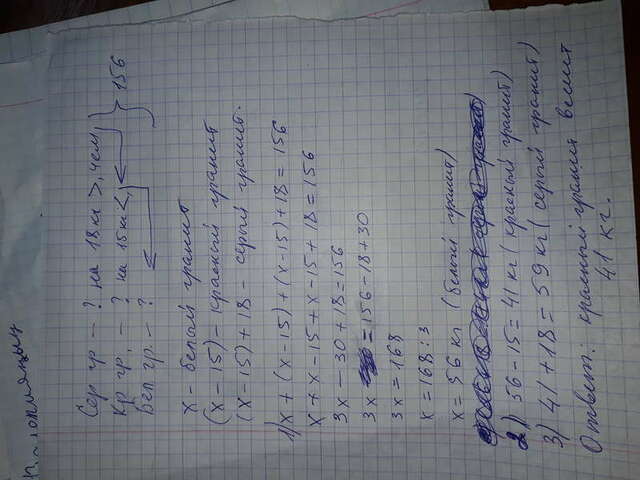 Сер гр – ? на 18 кг >, чем
Кр гр. – ? на 15 кг <,
Бел гр. – ?
156
x – белый гранит
(x – 15) – красный гранит
(x – 15) + 18 – серый гранит.
1) x + (x – 15) + (x – 15) + 18 = 156
x + x – 15 + x – 15 + 18 = 156
3x – 30 + 18 = 156
3x = 156 – 18 + 30
3x = 168
x = 168 : 3
x = 56 кг (белый гранит)
2) 56 – 15 = 41 кг (красный гранит)
3) 41 + 18 = 59 кг (серый гранит)
Ответ: красный гранит весит
41 кг.